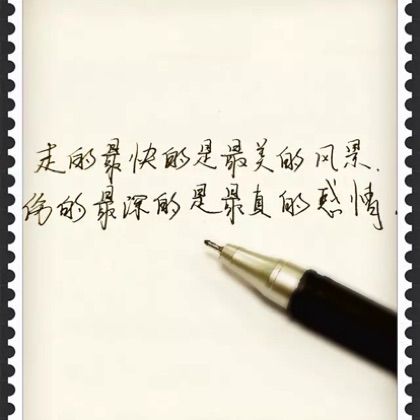 走的最快的是最美的风景.
伤的最深的是最真的感情.